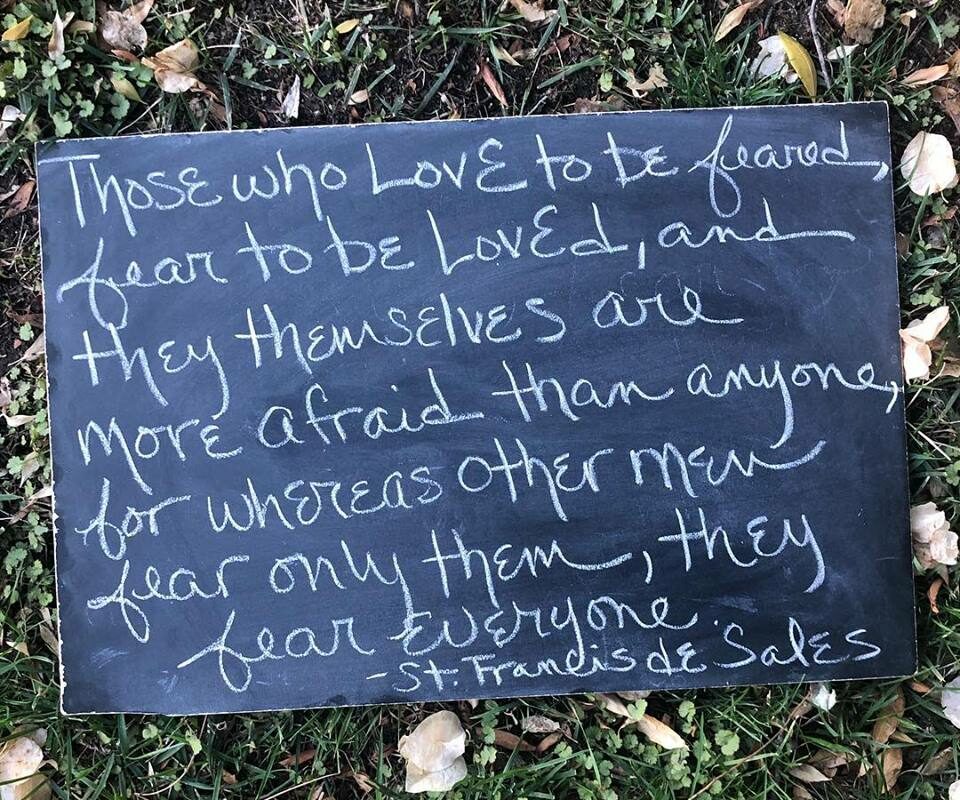 Those who Love to be feared,
fear to be Loved, and
they themselves are
more afraid than anyone,
for whereas other men
fear only them, they
fear everyone.
-St. Francis de Sales